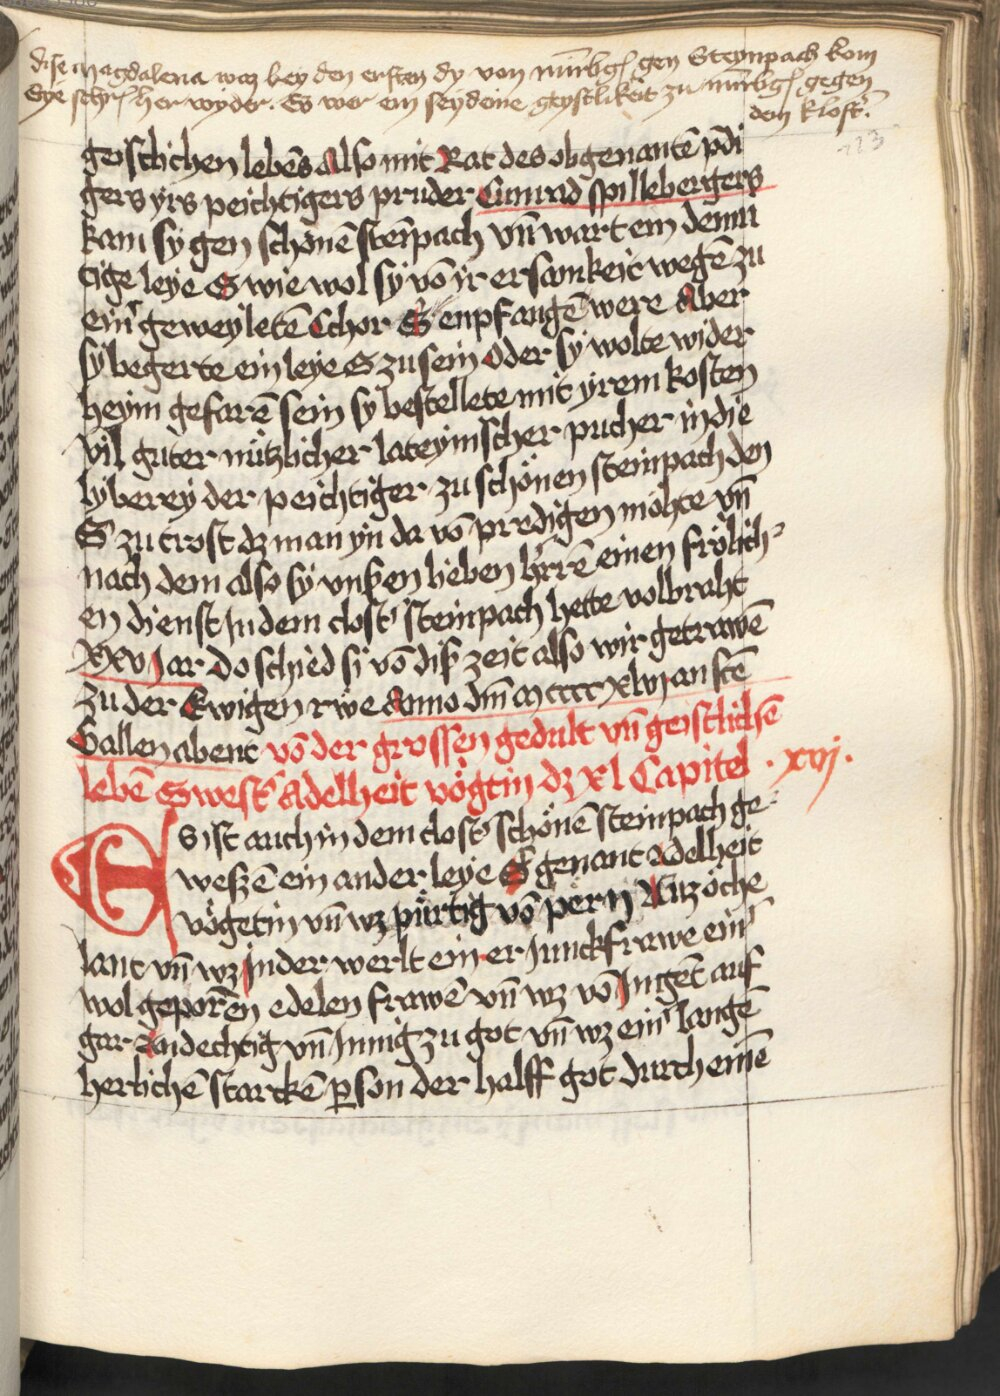 dise magdalena waz bey den ersten dy von nürbg gen Steynpach kom
Sye schyr her wyder. Es wer ein seydeine geystlikeit zu nürbg gegen
dem klost
113
geistlichen lebēs Also mit Rat des obgenantē p̄di
gers yrs peichtigers pruder Cunrad spillebergers
kam sy gen schönē steinpach vn̄ wart ein demü
tige leye S wie wol sy vō ir ersamkeit wegē zu
ein geweyletē Chor S enpfangē were Aber
sy begerte ein leye S zu sein Oder sy wolte wider
heym gefarē sein sy bestellete mit yrem kosten
vil guter nützlicher lateyinscher pucher in die
lyberey der peichtiger zu schönen steinpach den
S zu trost dz man yn da vō predigen möhte vn̄
nach dem also sy vnßen lieben hrrē einen frölich
en dienst In dem clost steinpach hette volbraht
xxv Jar do schied si vō diß zeit also wir getrawē
zu der Ewigen rwe Anno dm̄ m cccc xlvj an sctē
Gallen abent vō der grossen gedult vn̄ geistlichē
lebē Swest Adelheit vögtin dz xl Capitel . xvj .
Es ist auch in dem clost schönē steinpach ge
weßē ein ander leye S genant Adelheit
vögetin vn̄ wz pürtig vō pern Auz öche
lant vn̄ wz in der werlt ein er Junckfrawe ein
wol geporē͏n edelen frawē vn̄ wz vō Jugēt auf
gar Andechtig vn̄ Jnnig zu got vn̄ wz ein langē
herlichē starckē ꝑson der halff got durch einē